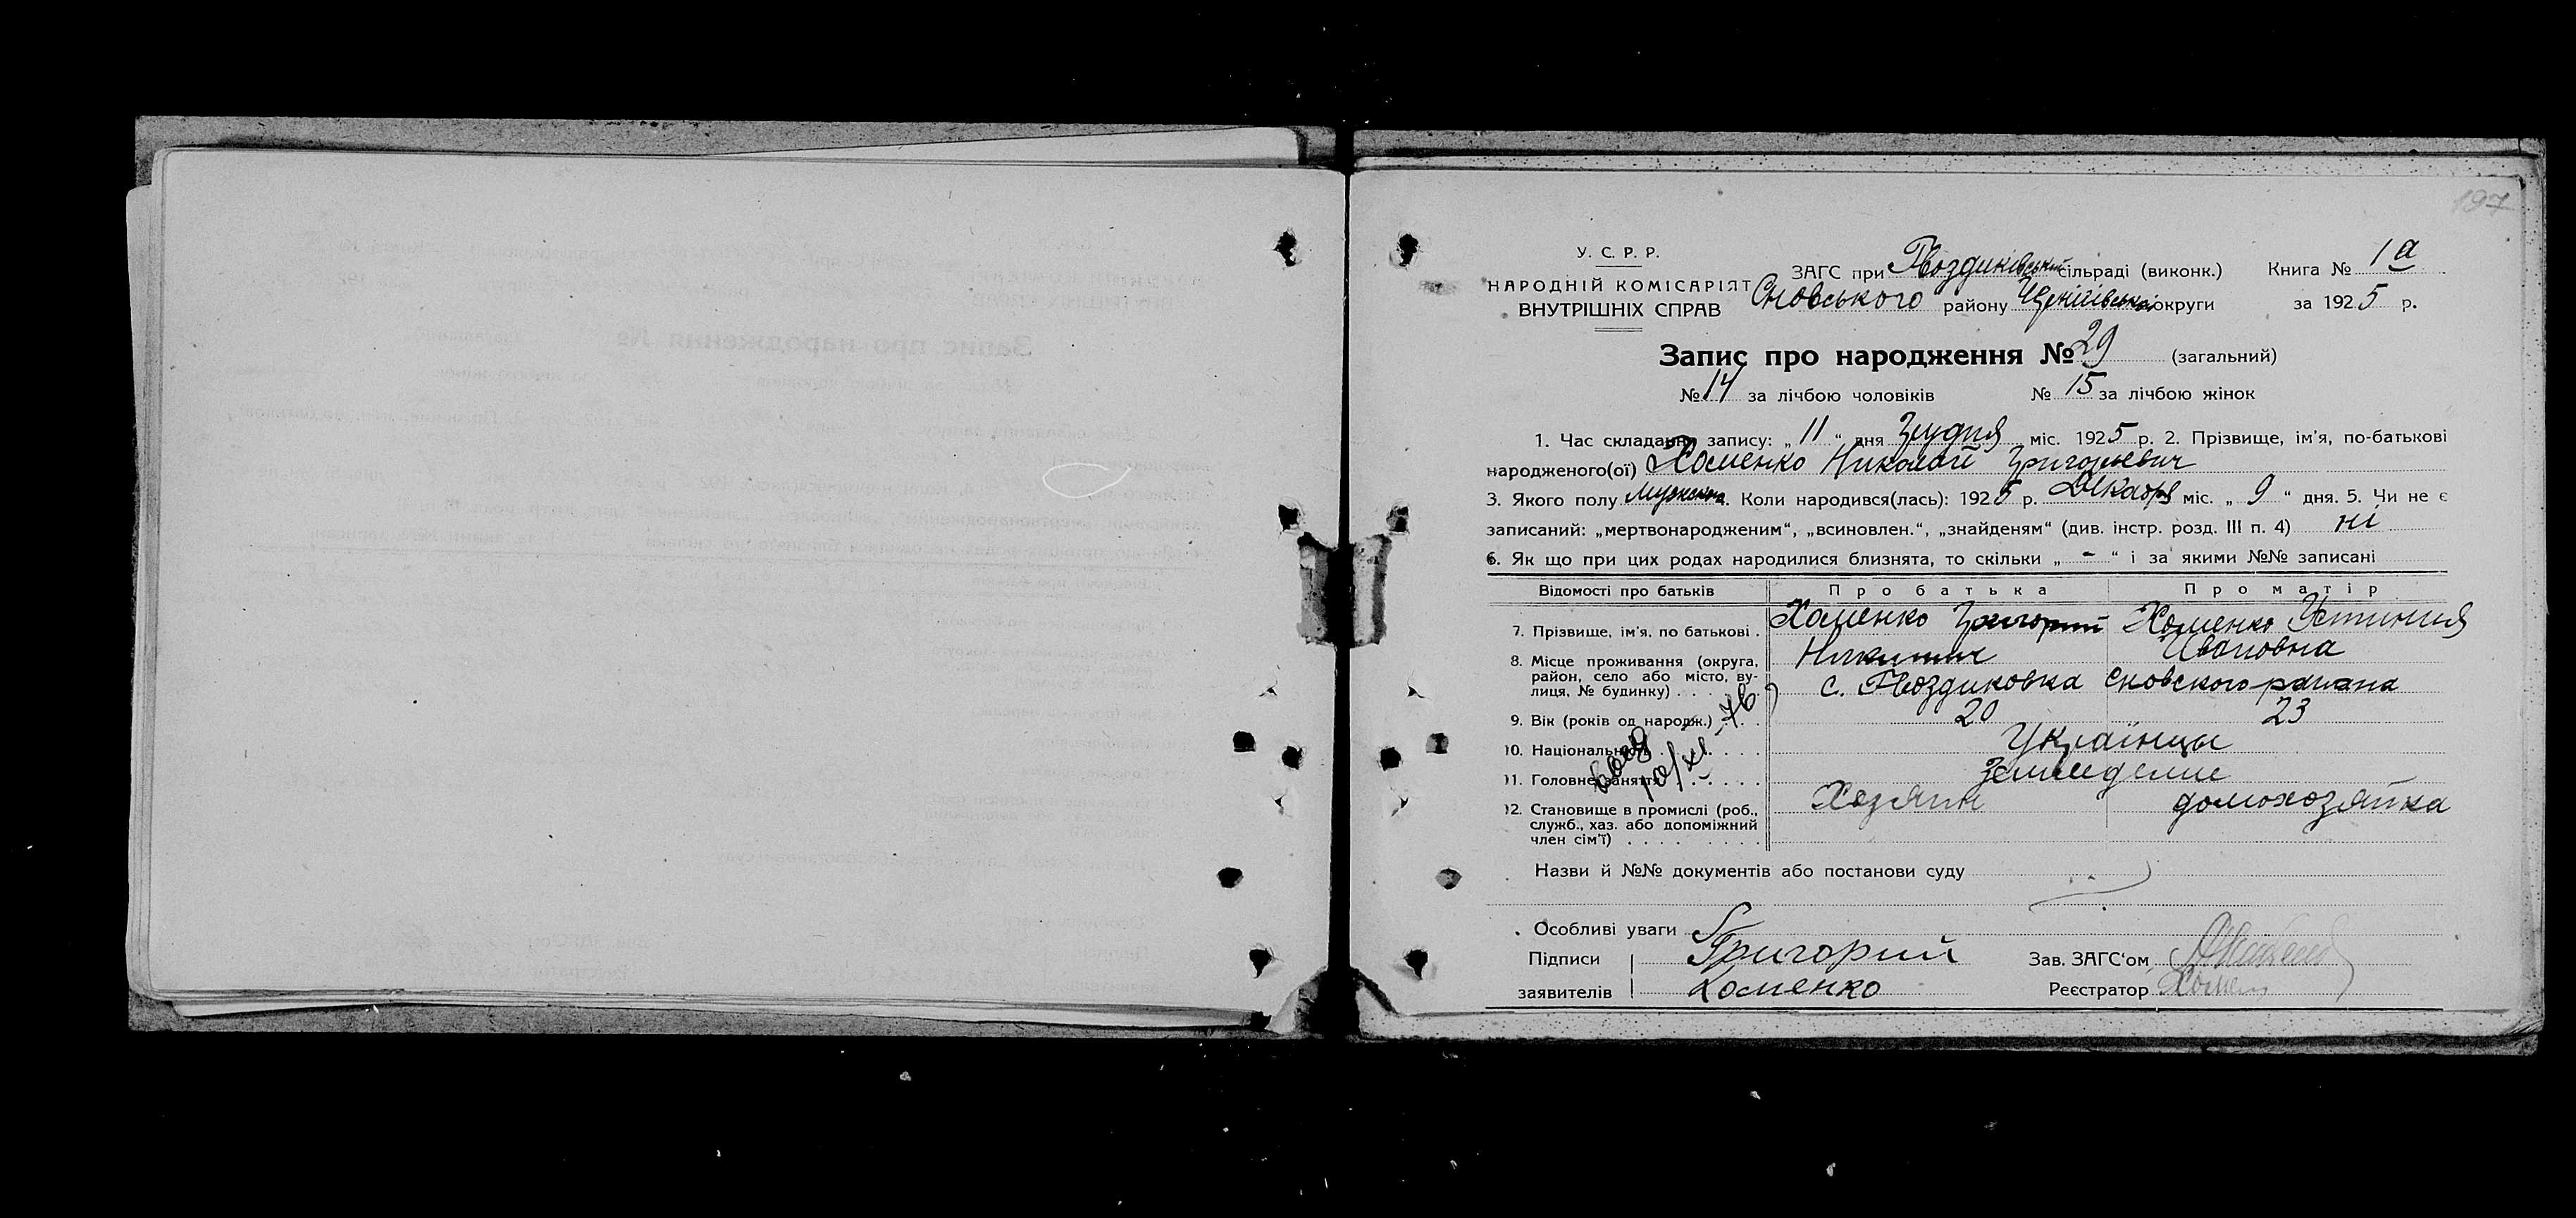 197
У. С. Р. Р.
НАРОДНІЙ КОМІСАРІЯТ
ВНУТРІШНІХ СПРАВ
ЗАГС при Гвоздиківський сільраді (виконк.) Книга № 1а
Сновського району округи за 1925 р.
Запис про народження № 29 (загальний)
№ 14 за лічбою чоловіків № 15 за лічбою жінок
1. Час складання запису: „ 11 “ дня Грудня міс. 1925 р. 2. Прізвище, ім’я, по-батькові
народженого(ої) Хоменко Николай Григорьевич
3. Якого полу 4. Коли народився(лась): 1925 р. Декабря міс. „ 9 “ дня. 5. Чи не є
записаний: „мертвонародженим“, „всиновлен.“, „знайденям“ (див. інстр. розд. III п. 4) ні
6. Як що при цих родах народилися близнята, то скільки „ - “ і за якими №№ записані
Відомості про батьків Про батька Про матір
7. Прізвище, ім’я, по батькові . Хоменко Григорий Хоменко Устиния
Никитич Ивановна
8. Місце проживання (округа,
район, село або місто, ву-
лиця, № будинку) . . . . с. Гвоздиковка Сновского района
9. Вік (років од народж.) . . . 20 23
10. Національність . . . . . . . Українцы
11. Головне заняття . . . . . . Земледелие
12. Становище в промислі (роб.,
служб., хаз. або допоміжний
член сім’ї) . . . . . . . . Хозяин домохозяйка
10/XI-76
Назви й №№ документів або постанови суду
Особливі уваги
Підписи Григорий Зав. ЗАГС‘ом
заявителів Хоменко Реєстратор